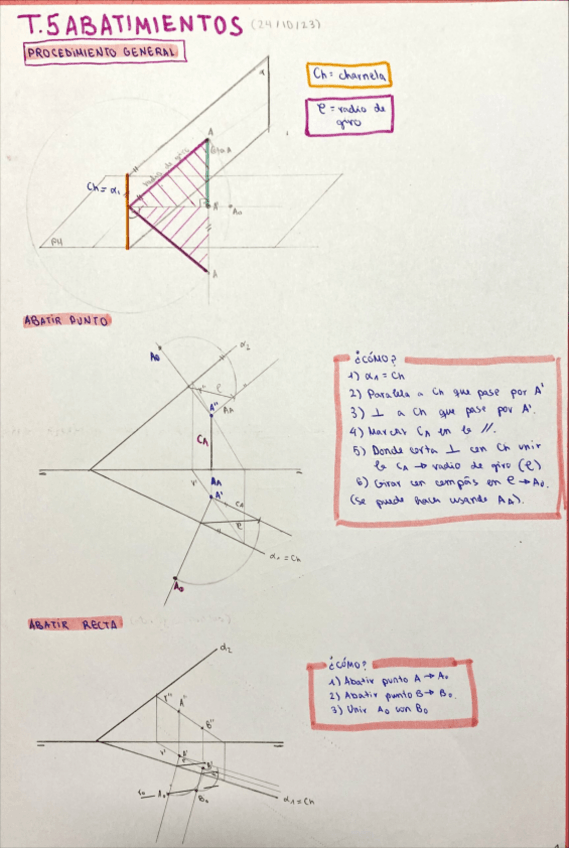 T.5 ABATIMIENTOS (24/10/23)
PROCEDIMIENTO GENERAL
Ch = charnela
ρ = radio de
giro
α
A
radio de giro
Ch = α₁
A₀
PH
A
ABATIR PUNTO
A₀
α₂
r''
ρ
A''
AA
CA
r'
AA
A'
CA
ρ
α₁ = Ch
A₀
¿CÓMO?
1) α₁ = Ch
2) Paralela a Ch que pase por A'
3) ⊥ a Ch que pase por A'.
4) Marcas CA en la //.
5) Donde corta ⊥ con Ch unir
la CA → radio de giro (ρ)
6) Girar con compás en ρ → A₀.
(Se puede hacer usando AA).
ABATIR RECTA
α₂
r''
A''
B''
r'
A'
B'
r₀
A₀
B₀
α₁ = Ch
¿CÓMO?
1) Abatir punto A → A₀
2) Abatir punto B → B₀.
3) Unir A₀ con B₀